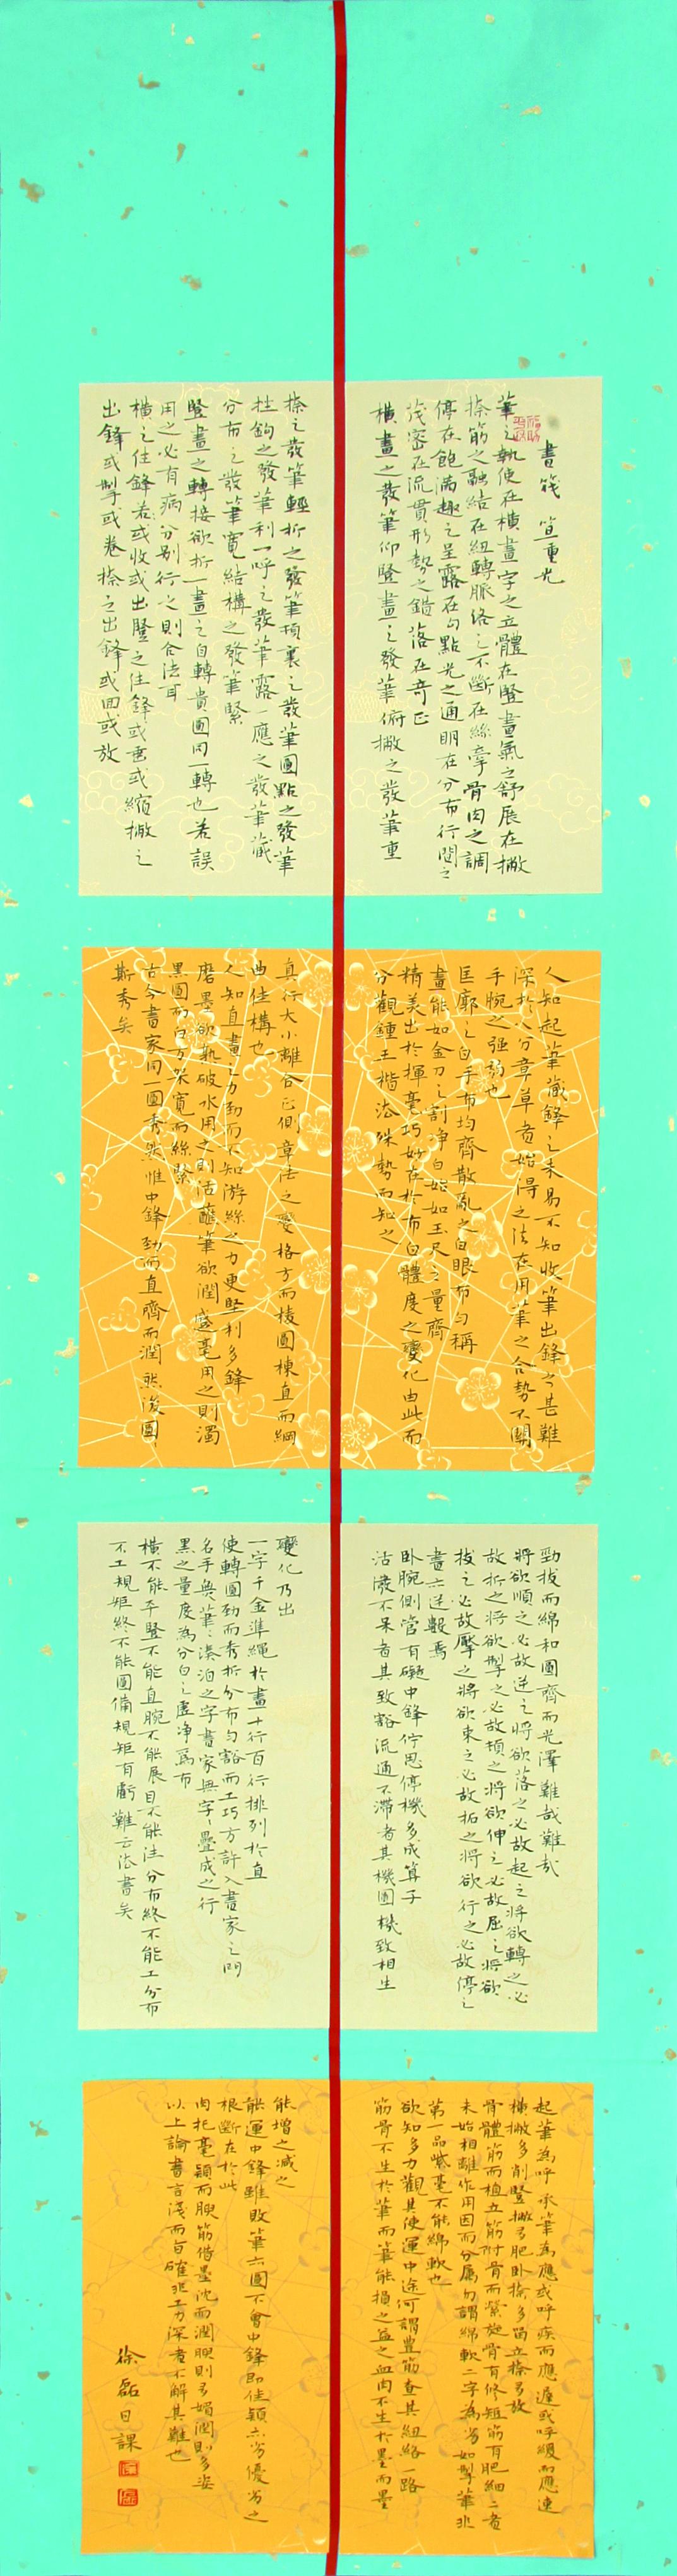 書筏 笪重光
筆之執使在橫畫字之立體在豎畫氣之舒展在撇
捺筋之融結在紐轉脈絡之不斷在絲牽骨肉之調
停在飽滿趣之呈露在勾點光之通明在分布行間之
茂密在流貫形勢之錯落在奇正
橫畫之發筆仰豎畫之發筆俯撇之發筆重
捺之發筆輕折之發筆頓裹之發筆圓點之發筆
挫鉤之發筆利一呼之發筆露一應之發筆藏
分布之發筆寬結構之發筆緊
豎畫之轉接欲折一畫之自轉貴圓同一轉也若誤
用之必有病分別行之則合法耳
橫之住鋒若或收或出豎之住鋒或垂或縮撇之
出鋒或掣或卷捺之出鋒或回或放
人知起筆藏鋒之未易不知收筆出鋒之甚難
深於八分章草者始得之法在用筆之合勢不關
手腕之强弱也
匡廓之白手布均齊散亂之白眼布勻稱
畫能如金刀之割净白始如玉尺之量齊
精美出於揮毫巧妙在於布白體度之變化由此而
分觀鍾王楷法殊勢而知之
真行大小離合正側章法之變格方而稜圓棟直而綱
曲佳構也
人知直畫之力勁而不知游絲之力更堅利多鋒
磨墨欲熟破水用之則活蘸筆欲潤蹙毫用之則濁
黑圓而白方架寬而絲緊
古今書家同一圓秀然惟中鋒勁而直齊而潤然後圓、
斯秀矣
勁拔而綿和圓齊而光澤難哉難哉
將欲順之必故逆之將欲落之必故起之將欲轉之必
故折之將欲掣之必故頓之將欲伸之必故屈之將欲
拔之必故擫之將欲束之必故拓之將欲行之必故停之
書亦逆數焉
卧腕側管有礙中鋒佇思停機多成算子
活潑不呆者其致豁流通不滯者其機圓機致相生
變化乃出
一字千金準繩於畫十行百行排列於直
使轉圓勁而秀折分布勻豁而工巧方許入書家之門
名手無筆、湊泊之字書家無字、疊成之行
黑之量度為分白之虛净為布
橫不能平豎不能直腕不能展目不能注分布終不能工分布
不工規矩終不能圓備規矩有虧難云法書矣
起筆為呼承筆為應或呼疾而應遲或呼緩而應速
橫撇多削豎撇多肥卧捺多留立捺多放
骨體筋而植立筋附骨而縈旋骨有修短筋有肥細二者
未始相離作用因而分屬勿謂綿軟二字為劣如掣筆非
第一品紫毫不能綿軟也
欲知多力觀其使運中途何謂豐筋查其紐絡一路
筋骨不生於筆而筆能損之益之血肉不生於墨而墨
能增之減之
能運中鋒雖敗筆亦圓不會中鋒即佳穎亦劣優劣之
根斷在於此
肉托毫穎而腴筋借墨沈而潤腴則多媚潤則多姿
以上論書言淺而旨確非工力深者不解其難也
徐磊日課